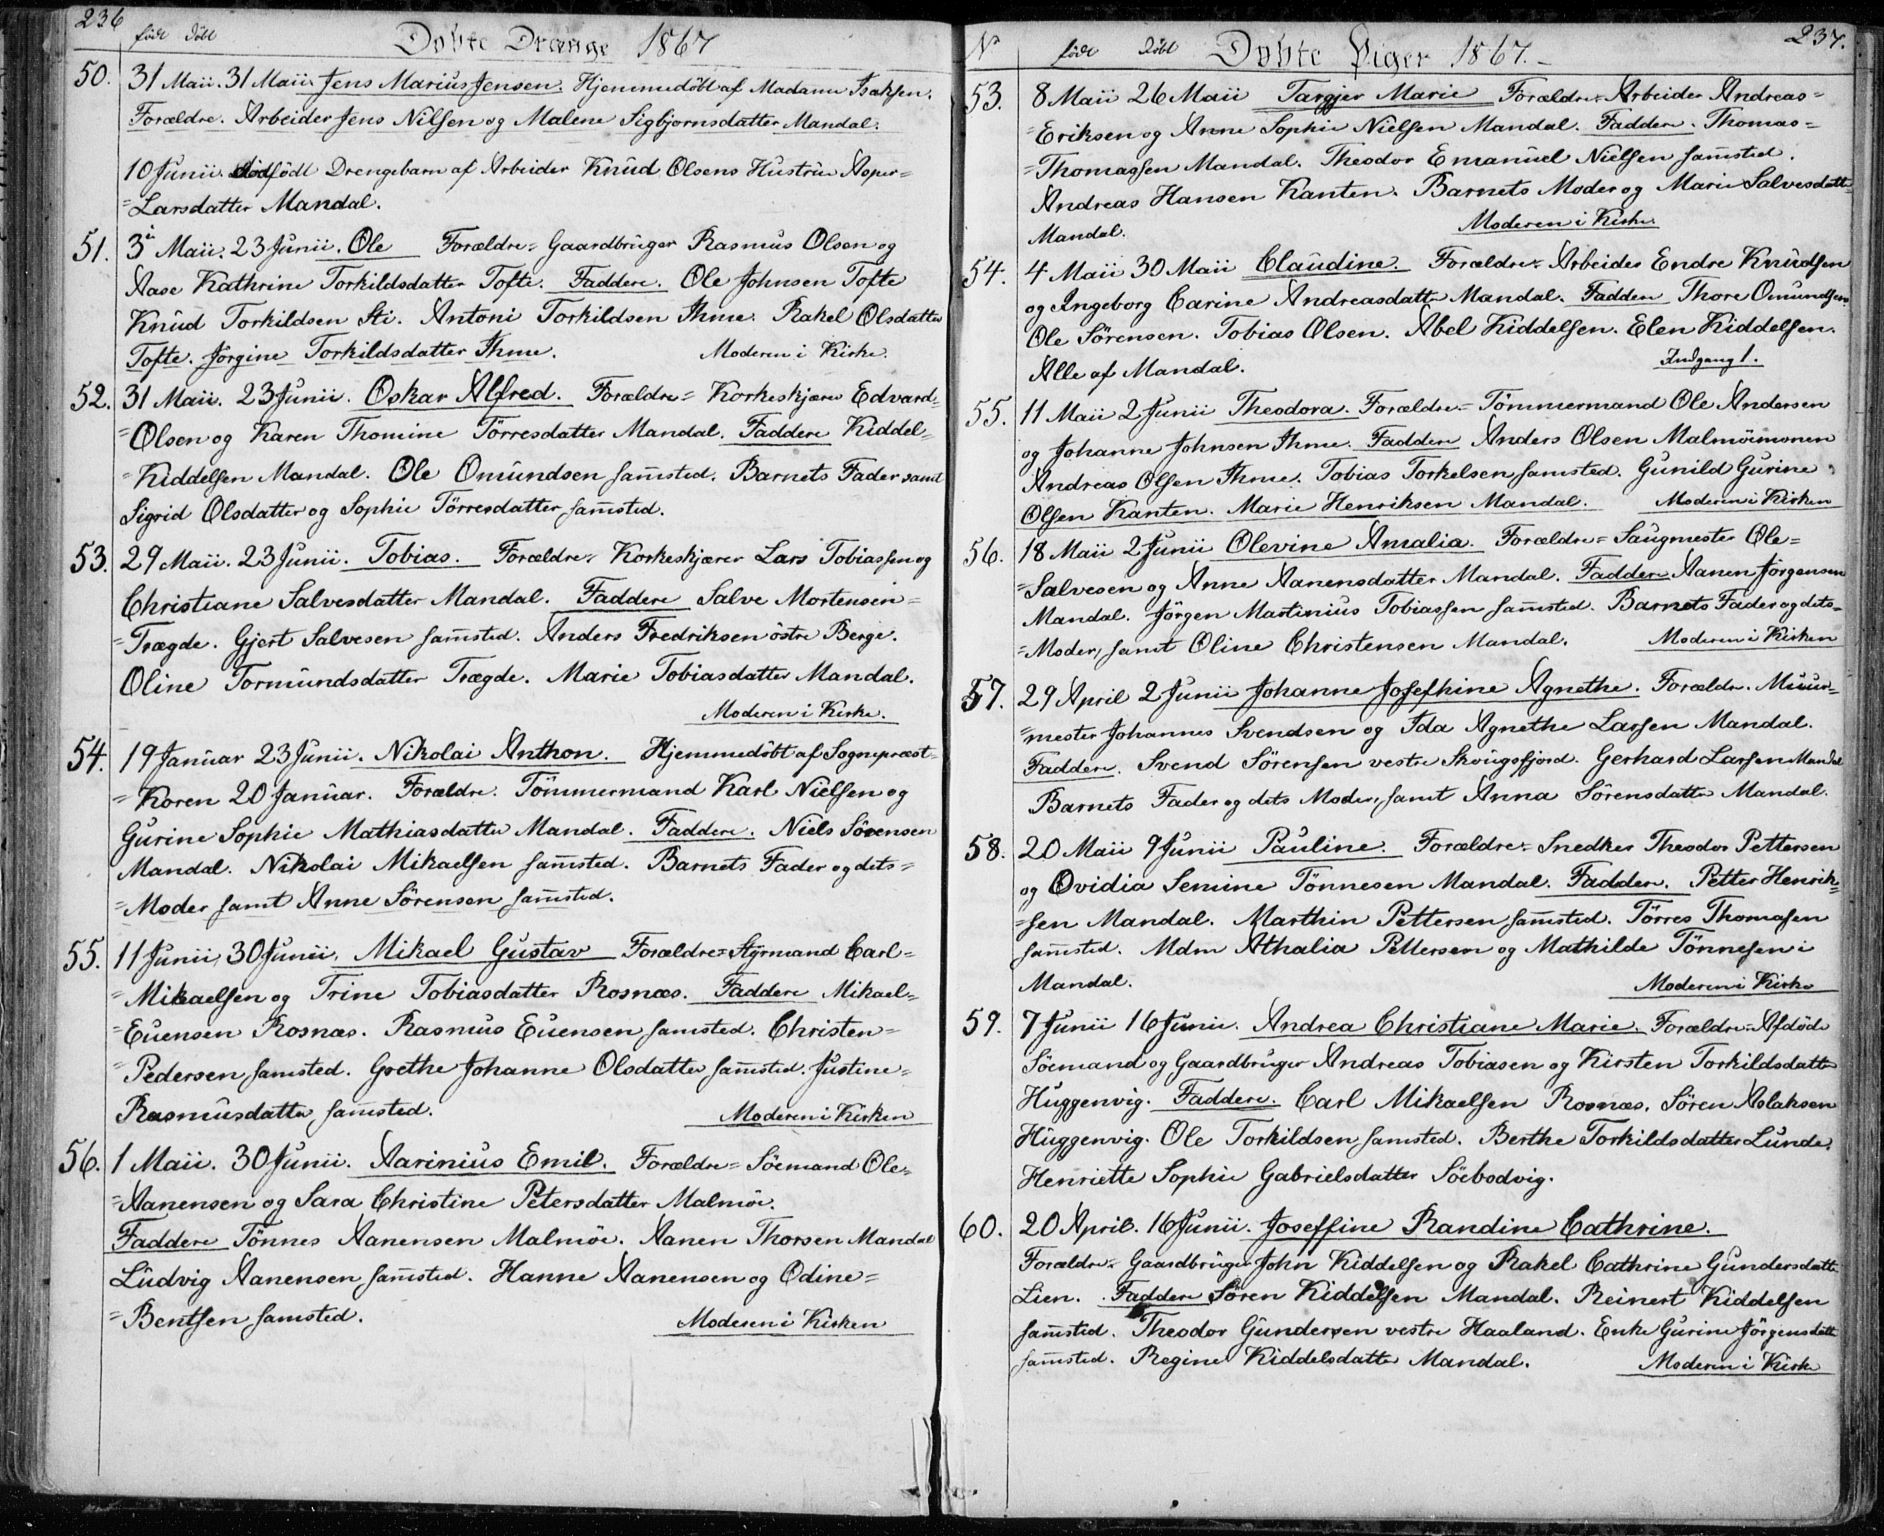 236
født døbt Døbte Drænge 1867
50. 31 Maii. 31 Maii. Jens Marius Jensen. Hjemmedøbt af Madame Isaksen.
Forældre. Arbeider Jens Nilsen og Malene Sigbjørnsdatter Mandal.
10 Junii. dødfødt Drengebarn af Arbeider Knud Olsens Hustrue Asper=
=Larsdatter Mandal.
51. 3i Maii. 23 Junii. Ole Forældre= Gaardbruger Rasmus Olsen og
Aase Kathrine Torkildsdatter Tofte. Faddere. Ole Johnsen Tofte
Knud Torkildsen Sti. Antoni Torkildsen Ihme. Rakel Olsdatter
Tofte. Jørgine Torkildsdatter Ihme. Moderen i Kirke.
52. 31 Maii. 23 Junii. Oskar Alfred. Forældre= Korkeskjærer Edvard=
=Olsen og Karen Thomine Törresdatter Mandal. Faddere Kiddel=
=Kiddelsen Mandal. Ole Omundsen sam̅sted. Barnets Fader samt
Sigrid Olsdatter og Sophie Törresdatter sam̅sted.
53. 29 Maii. 23 Junii. Tobias. Forældre= Korkeskjærer Lars Tobiassen og
Christiane Salvesdatter Mandal. Faddere Salve Mortensen=
=Trægde. Gjert Salvesen sam̅sted. Anders Fredriksen östre Berge.
Oline Tormundsdatter Trægde. Marie Tobiasdatter Mandal.
Moderen i Kirke.
54. 19 Januar 23 Junii. Nikolai Anthon. Hjemmedöbt af Sognepræst=
=Koren 20 Januar. Forældre. Tömmermand Karl Nielsen og
Gurine Sophie Mathiasdatter Mandal. Faddere. Niels Sörensen
Mandal. Nikolai Mikaelsen sam̅sted. Barnets Fader og dets=
=Moder samt Anne Sörensen sam̅sted.
55. 11 Junii 30 Junii. Mikael Gustav Forældre= Styrmand Carl=
=Mikaelsen og Trine Tobiasdatter Rosnæs. Faddere Mikael=
=Evensen Rosnæs. Rasmus Evensen samsted. Christen=
=Pedersen samsted. Grethe Johanne Olsdatter sam̅sted. Justine=
Rasmusdatter sam̅sted. Moderen i Kirken
56. 1 Maii. 30 Junii. Aarinius Emil. Forældre= Söemand Ole=
=Aanensen og Sara Christine Petersdatter Malmöe.
Faddere Tönnes Aanensen Malmöe. Aanen Thorsen Mandal
Ludvig Aanensen sam̅sted. Hanne Aanensen og Odine=
=Bentsen samsted. Moderen i Kirken
237.
No født døbt Døbte Piger 1867.
53. 8 Maii 26 Maii Targjer Marie Forældre= Arbeider Andreas=
=Eriksen og Anne Sophie Nielsen Mandal. Faddere. Thomas=
=Thomassen Mandal. Theodor Emanuel Nielsen sam̅sted.
Andreas Hansen Kanten. Barnets Moder og Marie Salvesdatt=
Mandal. Moderen i Kirke.
54. 4 Maii 30 Maii Claudine. Forældre= Arbeider Endre Knudsen
og Ingeborg Carine Andreasdatter Mandal. Faddere Thore Omundsen
Ole Sörensen. Tobias Olsen. Abel Kiddelsen. Elen Kiddelsen.
Alle af Mandal. Indgang 1.
55. 11 Maii 2 Junii Theodora. Forældre= Tömmermand Ole Andersen
og Johanne Johnsen Ihme. Faddere Anders Olsen Malmöimonen
Andreas Olsen Ihme. Tobias Torkelsen samsted. Gunild Gurine
Olsen Kanten. Marie Henriksen Mandal. Moderen i Kirken
56. 18 Maii 2 Junii Olevine Amalia. Forældre= Saugmester Ole=
=Salvesen og Anne Aanensdatter Mandal. Faddere Aanen Jörgensen
Mandal. Jörgen Martinius Tobiassen samsted. Barnets Fader og dets=
=Moder, samt Oline Christensen Mandal. Moderen i Kirken
57. 29 April 2 Junii Johanne Josefhine Agnethe. Forældre. Muur=
=mester Johannes Svendsen og Ida Agnethe Larsen Mandal.
Faddere. Svend Sörensen vestre Skougsfjord. Gerhard Larsen Mandal
Barnets Fader og dets Moder, samt Anna Sörensdatter Mandal.
58. 20 Maii 9 Junii Pauline. Forældre= Snedker Theodor Pettersen
og Ovidia Semine Tönnesen Mandal. Faddere. Petter Henrik=
=sen Mandal. Marthin Pettersen samsted. Törres Thomasen
samsted. Mdm Athalia Pettersen og Mathilde Tönnesen i
Mandal. Moderen i Kirke
59. 7 Junii 16 Junii. Andrea Christiane Marie. Forældre= Afdöde
Söemand og Gaardbruger Andreas Tobiasen og Kirsten Torkildsdatter
Huggenvig. Faddere. Carl Mikaelsen Rosnæs. Sören Aslaksen
Huggenvig. Ole Torkildsen samsted. Berthe Torkildsdatter Lunde.
Henriette Sophie Gabrielsdatter Söebodvig.
60. 20 April. 16 Junii. Joseffine Randine Cathrine.
Forældre= Gaardbruger John Kiddelsen og Rakel Cathrine Gundersdatte
Lien. Faddere Sören Kiddelsen Mandal. Reinert Kiddelsen
samsted. Theodor Gundersen vestre Haaland. Enke Gurine Jörgensdatt
samsted. Regine Kiddelsdatter Mandal. Moderen i Kirke